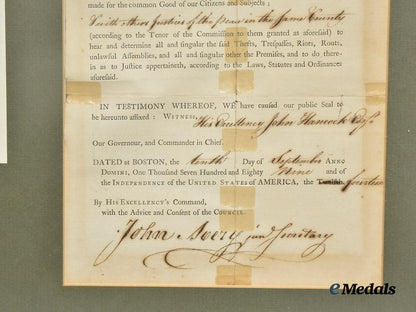 made for the common Good of our Citizens and Subjects;
with other Justices of the Peace in the same County
(according to the Tenor of the Commission to them granted as aforesaid) to
hear and determine all and singular the said Thefts, Trespasses, Riots, Routs,
unlawful Assemblies, and all and singular other the Premises, and to do there-
in as to Justice appertaineth, according to the Laws, Statutes and Ordinances
aforesaid.
IN TESTIMONY WHEREOF, WE have caused our public Seal to
be hereunto affixed: WITNESS, His Excellency John Hancock Esqr.
Our Governour, and Commander in Chief.
DATED at BOSTON, the tenth Day of September ANNO
DOMINI, One Thousand Seven Hundred and Eighty Nine and of
the INDEPENDENCE of the UNITED STATES of AMERICA, the Twelfth fourteen
By HIS EXCELLENCY'S Command,
with the Advice and Consent of the COUNCIL.
John Avery junr Secretary
eMedals